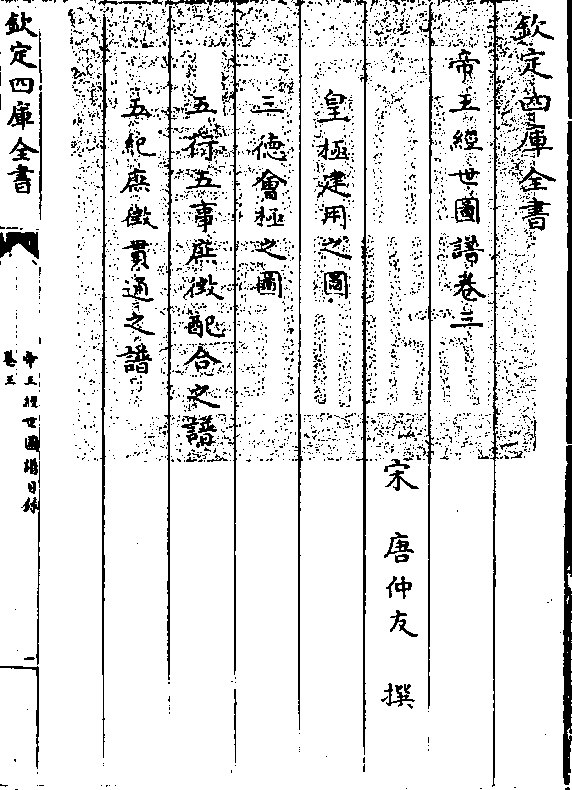 欽定四庫全書
帝王經世圖譜卷三
宋 唐仲友 撰
皇極建用之圖
三德會極之圖
五行五事庶徴配合之譜
五紀庶徴貫通之譜
欽定四庫全書
帝王經世圖譜目録
卷三
一